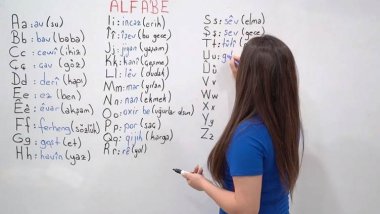 ALFABE
Aa: av (su)
Bb: bav (baba)
Cc: cewî (ikiz)
Çç: çav (göz)
Dd: derî (kapı)
Ee: ez (ben)
Êê: êvar (akşam)
Ff: ferheng (sözlük)
Gg: goşt (et)
Hh: havîn (yaz)
Iı: incas (erik)
Îî: îsev (bu gece)
Jj: jiyan (yaşam)
Kk: kanî (çeşme)
Ll: lêv (dudak)
Mm: mar (yılan)
Nn: nan (ekmek)
Oo: oxir be (uğurlar olsun)
Pp: por (saç)
Qq: qijik (karga)
Rr: rê (yol)
Ss: sêv (elma)
Şş: şev (gece)
Tt: tilî
Uu:
Ûû
Vv
Ww
Xx
Yy
Zz